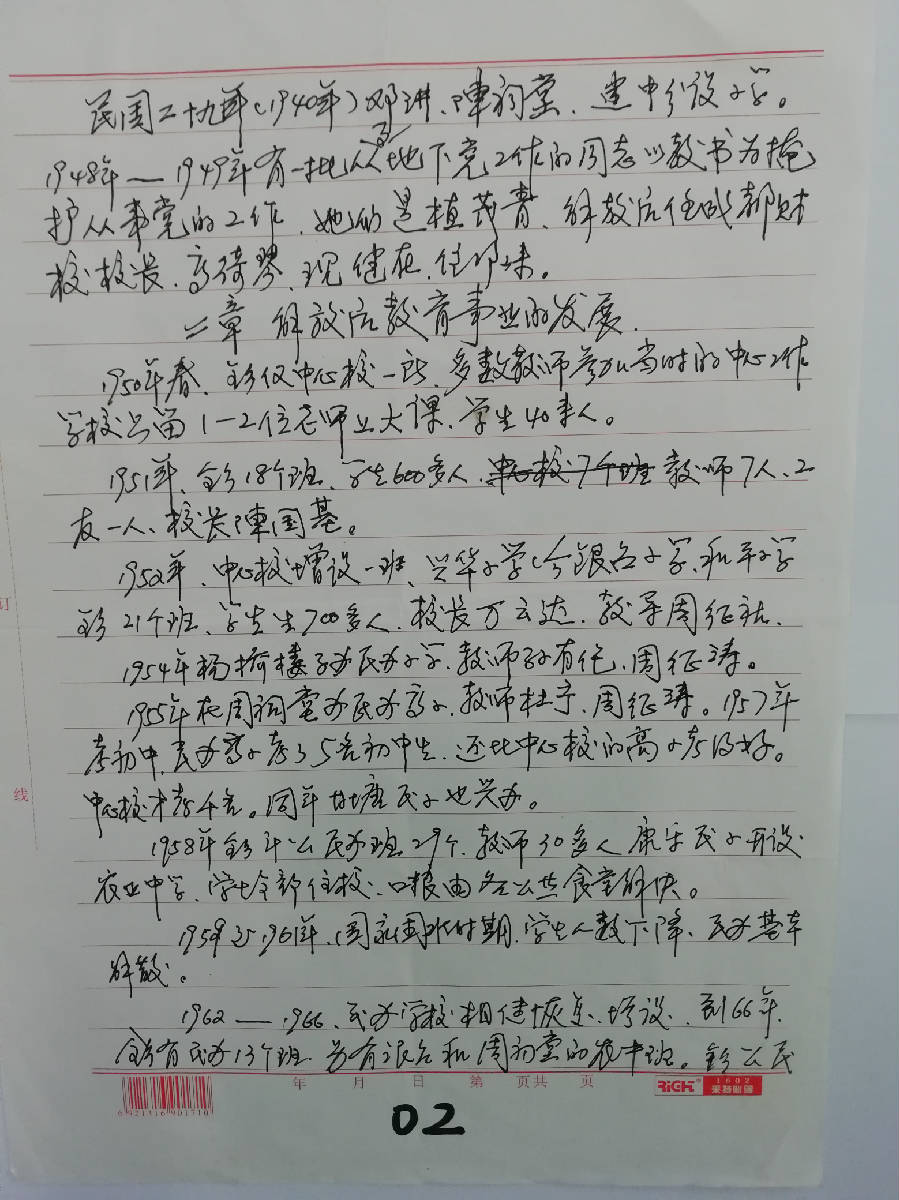 民国二十九年(1940年)邓洪、陳祠堂、建中分设小学。
1948年——1949年有一批从事地下党工作的同志以教书为掩
护从事党的工作、她的是植茂青、解放后任成都财
校校长、高琦琴、现健在、住邛崃。
二章 解放后教育事业的发展.
1950年春、全乡仅中心校一所、多数教师参加当时的中心工作
学校只留1-2位老师上大课、学生40来人。
1951年、全乡18个班、学生600多人、中心校7个班 教师7人、工
友一人、校长陳国基。
1952年、中心校增设一班、兴华小学(今銀台小学、和平小学
全乡21个班、学生700多人、校长万云达、教导周征祛.
1954年杨楼子办民办小学、教师 有伦、周征涛。
1955年在周祠堂办民办高小、教师杜宁、周征涛。1957年
考初中、民办高小考了5名初中生、还比中心校的高小考得好。
中心校才考4名。同年甘塘民小也兴办。
1958年全乡 公民办班29个、教师30多人 康乐民小开设
农业中学、学生全部住校、口粮由各公共食堂解决。
1959至1961年、国家困难时期、学生人数下降、民办基本
解散。
1962——1966、民办学校相继恢复、增设、到66年、
全乡有民办13个班 另有银台和周祠堂的农中班。全乡公民
订
线
年 月 日 第 页共 页
6921316901710
RiCH® 1602
02